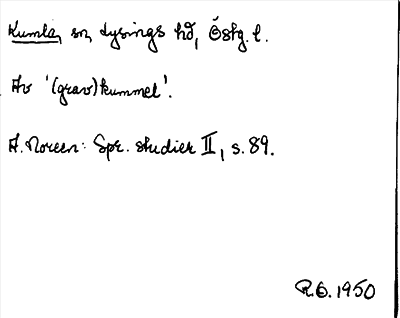 Kumla, sn, Lysings hd, Östg. l.
Av '(grav)kummel'.
A. Noreen: Spr. studier II, s. 89.
R.Ö. 1950